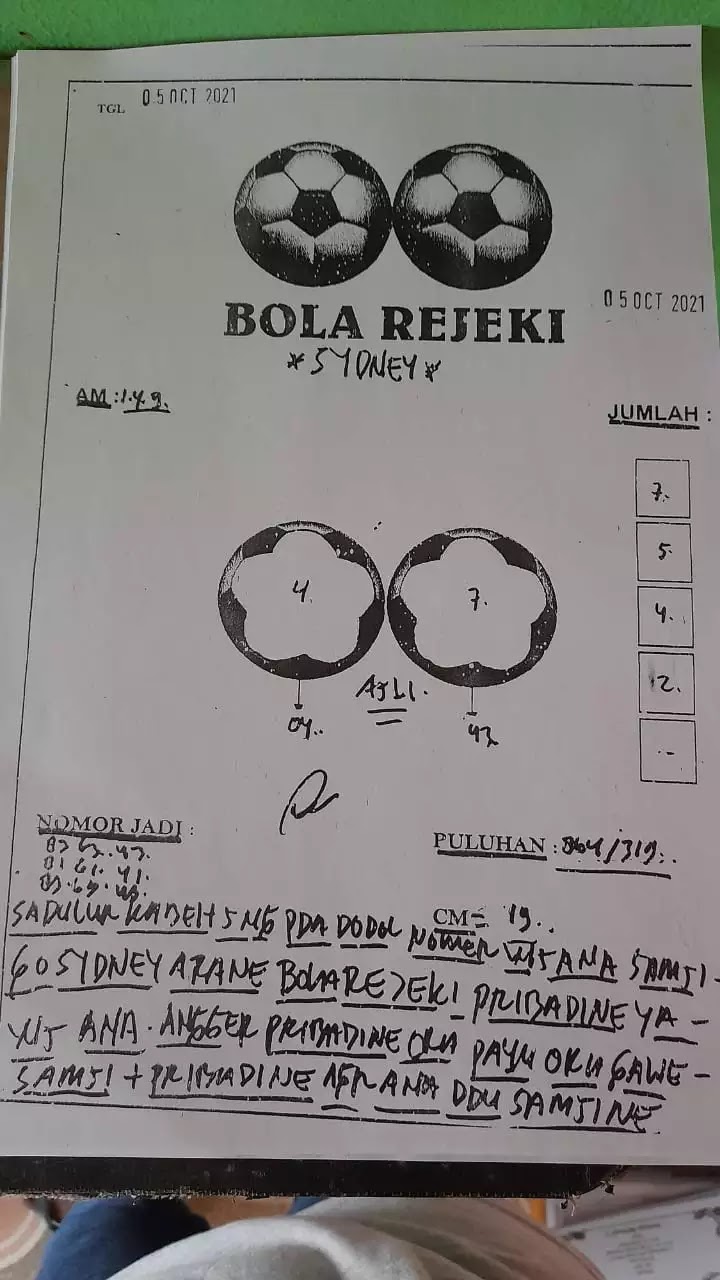 TGL 05 OCT 2021
BOLA REJEKI
05 OCT 2021
*SYDNEY*
AM : 1.4.9.
JUMLAH :
7.
5
4.
2.
4. 7.
ASLI.
04..
NOMOR JADI :
PULUHAN : 864/319..
41.
CM= 19..
SADULUR KABEH SNG PDA DODOL NOMER WIS ANA SAMJI-
GO SYDNEY ARANE BOLA REJEKI PRIBADINE YA-
WIS ANA. ANGGER PRIBADINE ORA PAYU ORA GAWE-
SAMJI + PRIBADINE ANA DDU SAMJINE